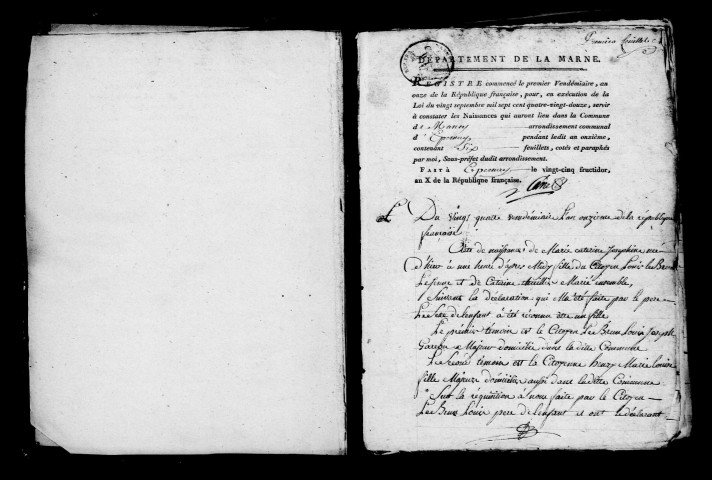 Première feuillet
DÉPARTEMENT DE LA MARNE.
REGISTRE commencé le premier Vendémiaire, an
onze de la République française, pour, en exécution de la
Loi du vingt septembre mil sept cent quatre-vingt-douze, servir
à constater les Naissances qui auront lieu dans la Commune
d e Mancy arrondissement communal
d' Epernay pendant ledit an onzième,
contenant Six feuillets, cotés et paraphés
par moi, Sous-préfet dudit arrondissement.
FAIT à Epernay le vingt-cinq fructidor,
an X de la République française.
Du vingt quatre vendémiaire l'an onzieme de la republique
française
Acte de naissance de Marie caterine Josephine née
d'hier à une heure d'apres Midy fille du Citoyen Louis le Brun
Lejeune et de Caterine Marié ensemble,
Suivant la déclaration qui Ma été faite par le pere
Le Sexe de lenfant à été reconnu être un fille
Le premier temoin est le Citoyen Le Brun Louis Joseph
Garçon Majeur domicilié dans la ditte Commune
Le second temoin est la Citoyenne henry Marie louise
fille Majeure domiciliée aussi dans la ditte Commune
Sur la requisition à nous faite par le Citoyen
Le Brun Louis pere de lenfant et ont le déclarant